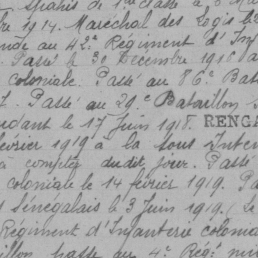 Spahis de 1ère classe le 6 Ma
re 1914. Maréchal des Logis le
nde au 42e Régiment d'Inf
. Passé le 30 Décembre 1916 a
coloniale. Passé au 86e Bat
t. Passé au 29e Bataillon S
endant le 17 Juin 1918. RENGA
évrier 1919 à la Sous Inten
à compter du dit jour. Passé
coloniale le 14 février 1919. Pa
s Sénégalais le 3 Juin 1919. Le
Régiment d'Infanterie colonia
illon passe au 4e Régt mi